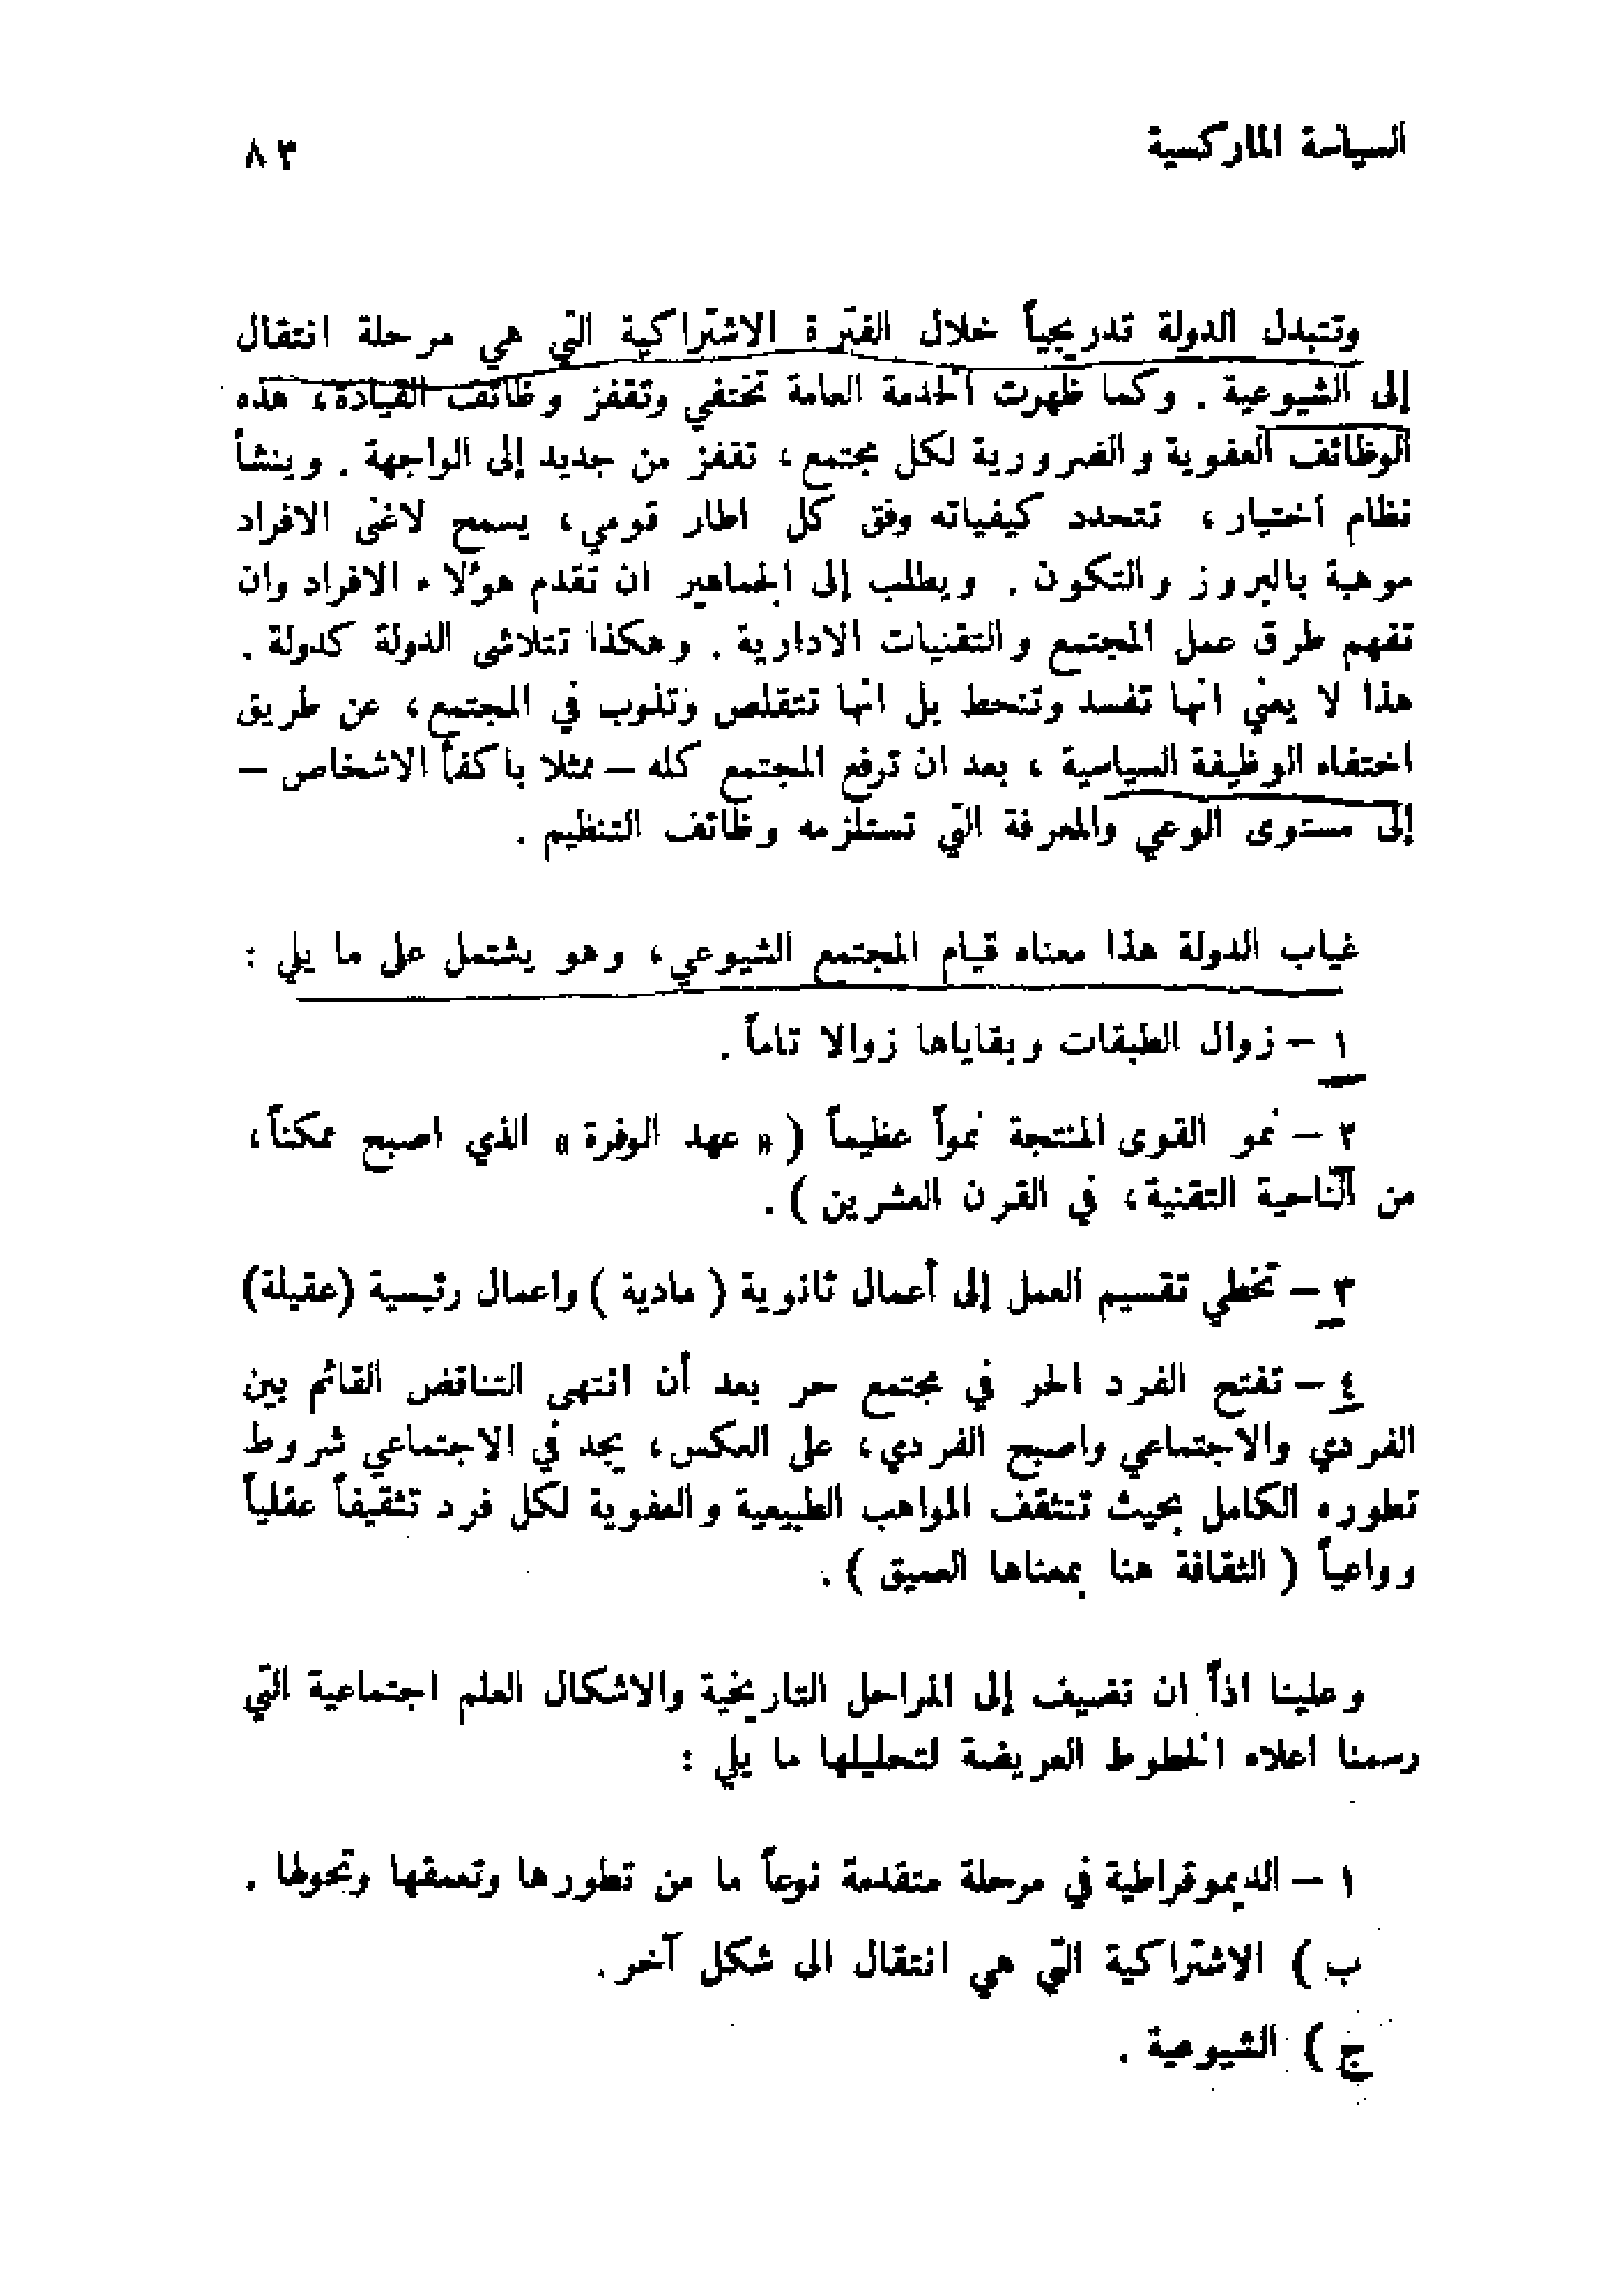 السياسة الماركسية ٨٣
وتتبدل الدولة تدريجياً خلال الفترة الاشتراكية التي هي مرحلة انتقال
إلى الشيوعية . وكما ظهرت الخدمة العامة تختفي وتقفز وظائف القيادة، هذه
الوظائف العفوية والضرورية لكل مجتمع، تقفز من جديد إلى الواجهة . وينشأ
نظام اختيار، تتحدد كيفياته وفق كل اطار قومي، يسمح لاغنى الافراد
موهبة بالبروز والتكون . ويطلب إلى الجماهير ان تقدم هؤلاء الافراد وان
تفهم طرق عمل المجتمع والتقنيات الادارية . وهكذا تتلاشى الدولة كدولة .
هذا لا يعني انها تفسد وتنحط بل انها تتقلص وتذوب في المجتمع، عن طريق
اختفاء الوظيفة السياسية ، بعد ان ترفع المجتمع كله – ممثلا باكفأ الاشخاص –
إلى مستوى الوعي والمعرفة التي تستلزمه وظائف التنظيم .
غياب الدولة هذا معناه قيام المجتمع الشيوعي، وهو يشتمل على ما يلي :
١ – زوال الطبقات وبقاياها زوالا تاماً .
٢ – نمو القوى المنتجة نمواً عظيماً ( « عهد الوفرة » الذي اصبح ممكناً،
من الناحية التقنية، في القرن العشرين ) .
٣ – تخطي تقسيم العمل إلى أعمال ثانوية ( مادية ) واعمال رئيسية (عقيلة)
٤ – تفتح الفرد الحر في مجتمع حر بعد أن انتهى التناقض القائم بين
الفردي والاجتماعي واصبح الفردي، على العكس، يجد في الاجتماعي شروط
تطوره الكامل بحيث تتثقف المواهب الطبيعية والعفوية لكل فرد تثقيفاً عقلياً
وواعياً ( الثقافة هنا بمعناها العميق ) .
وعلينا اذاً ان نضيف إلى المراحل التاريخية والاشكال العلم اجتماعية التي
رسمنا اعلاه الخطوط العريضة لتحليلها ما يلي :
١ – الديموقراطية في مرحلة متقدمة نوعاً ما من تطورها وتعمقها وتحولها .
ب ) الاشتراكية التي هي انتقال الى شكل آخر.
ج ) الشيوعية .